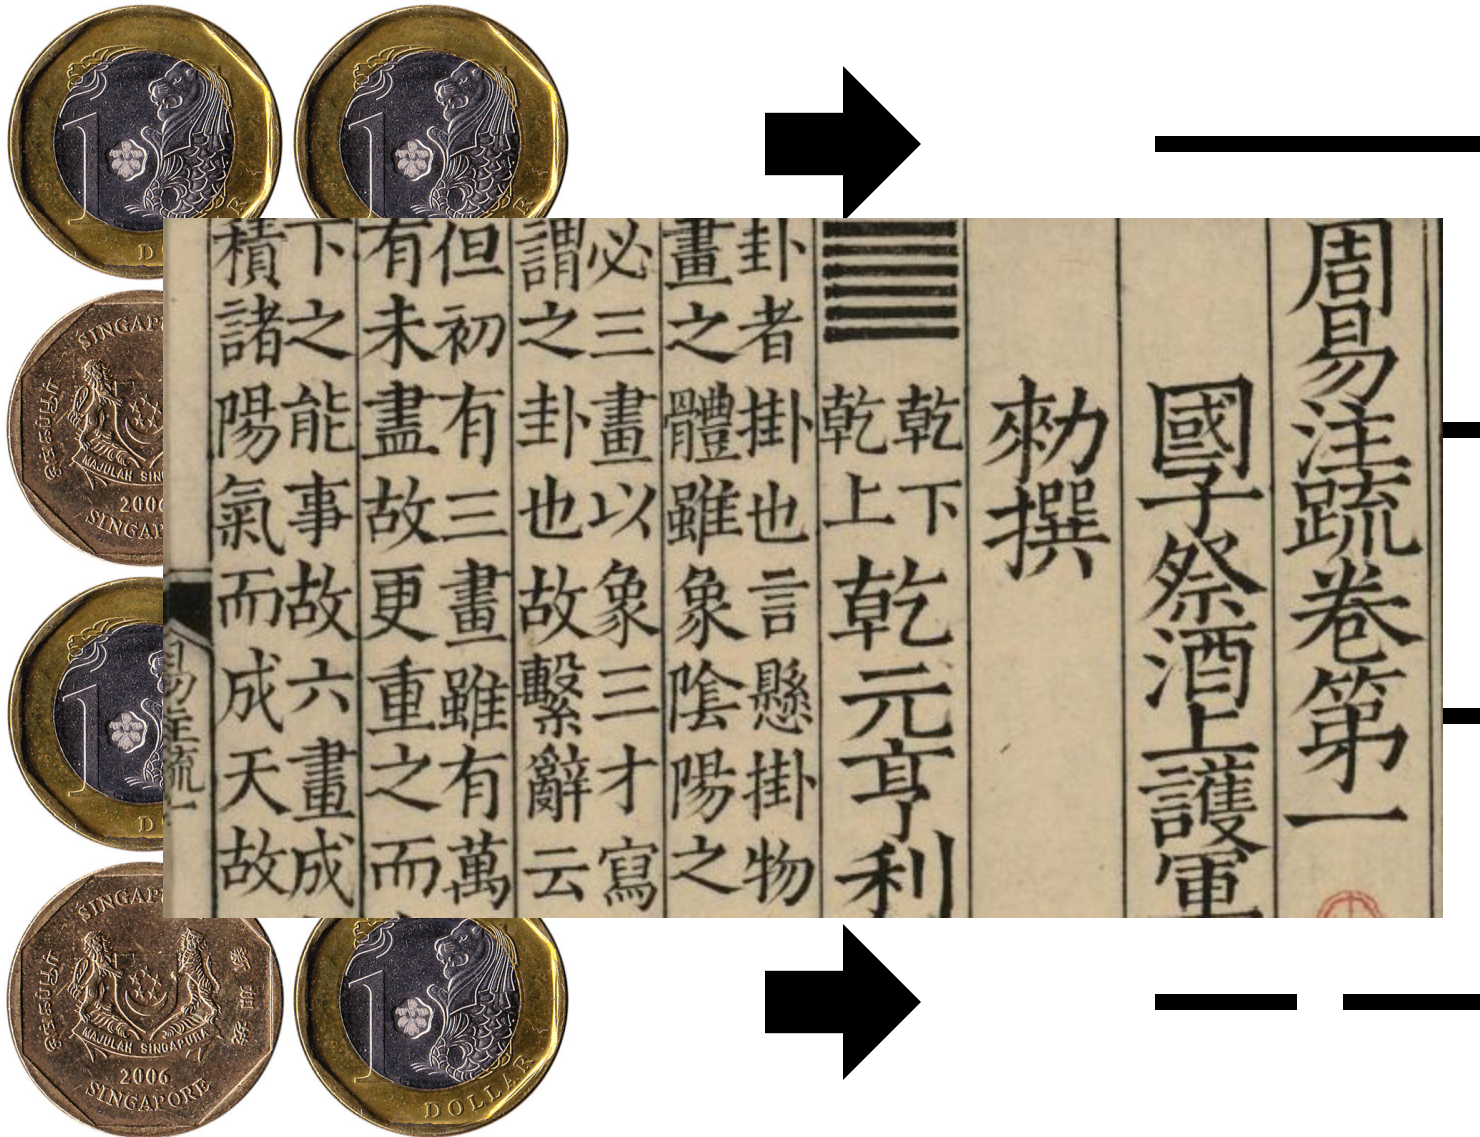 1
1
周易注疏卷第一
國子祭酒上護軍
勑撰
乾下
乾上
乾元亨利
卦者掛也言懸掛物
畫之體雖象陰陽之
必三畫以象三才寫
謂之卦也故繫辭云
但初有三畫雖有萬
有未盡故更重之而
下之能事故六畫成
積諸陽氣而成天故
1
MAJULAH SINGAPURA
新加坡
2006
SINGAPORE
1
DOLLAR